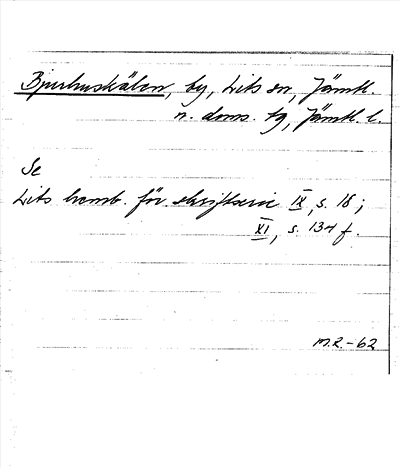 Bjurhuskälen, by, Lits sn, Jämtl.
n. doms. tg, Jämtl. l.
Se
Lits hemb. för. skriftserie IX, s. 18;
XI, s. 134 f.
M.R.-62